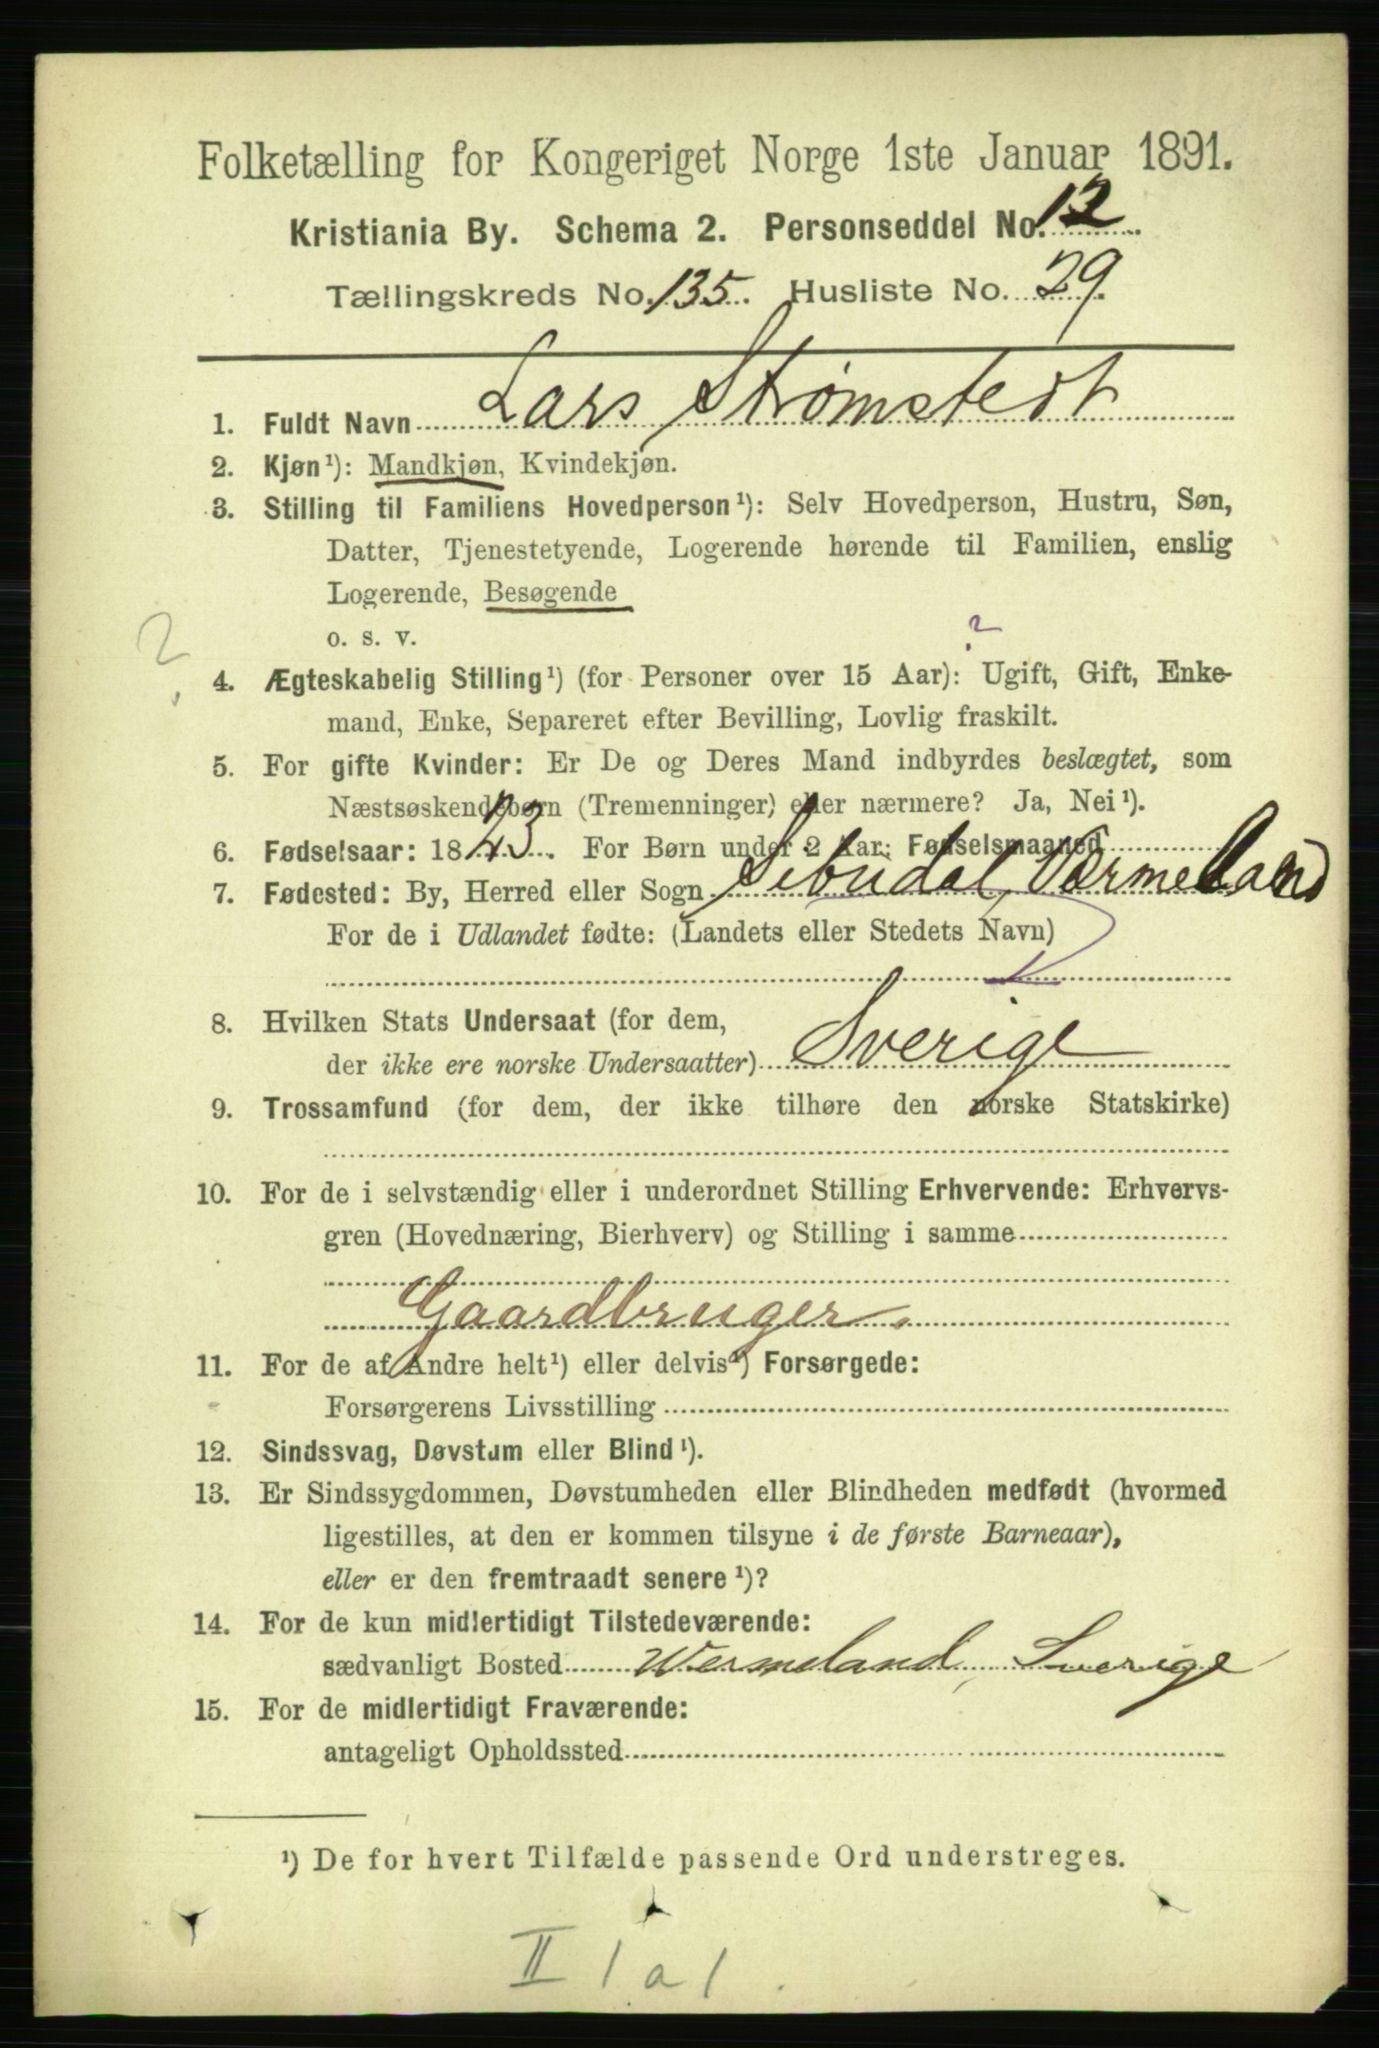 Folketælling for Kongeriget Norge 1ste Januar 1891.
Kristiania By. Schema 2. Personseddel No. 12
Tællingskreds No. 135. Husliste No. 29.
1. Fuldt Navn Lars Strømstedt
2. Kjøn¹): Mandkjøn, Kvindekjøn.
3. Stilling til Familiens Hovedperson¹): Selv Hovedperson, Hustru, Søn,
Datter, Tjenestetyende, Logerende hørende til Familien, enslig
Logerende, Besøgende
o. s. v.
?
?
4. Ægteskabelig Stilling¹) (for Personer over 15 Aar): Ugift, Gift, Enke-
mand, Enke, Separeret efter Bevilling, Lovlig fraskilt.
5. For gifte Kvinder: Er De og Deres Mand indbyrdes beslægtet, som
Næstsøskendebørn (Tremenninger) eller nærmere? Ja, Nei¹).
6. Fødselsaar: 1823. For Børn under 2 Aar: Fødselsmaaned
7. Fødested: By, Herred eller Sogn Värmeland
For de i Udlandet fødte: (Landets eller Stedets Navn)
8. Hvilken Stats Undersaat (for dem,
der ikke ere norske Undersaatter) Sverige
9. Trossamfund (for dem, der ikke tilhøre den norske Statskirke)
10. For de i selvstændig eller i underordnet Stilling Erhvervende: Erhvervs-
gren (Hovednæring, Bierhverv) og Stilling i samme
Gaardbruger.
11. For de af Andre helt¹) eller delvis¹) Forsørgede:
Forsørgerens Livsstilling
12. Sindssvag, Døvstum eller Blind¹).
13. Er Sindssygdommen, Døvstumheden eller Blindheden medfødt (hvormed
ligestilles, at den er kommen tilsyne i de første Barneaar),
eller er den fremtraadt senere¹)?
14. For de kun midlertidigt Tilstedeværende:
sædvanligt Bosted Wermeland, Sverige
15. For de midlertidigt Fraværende:
antageligt Opholdssted
¹) De for hvert Tilfælde passende Ord understreges.
II 1 a 1